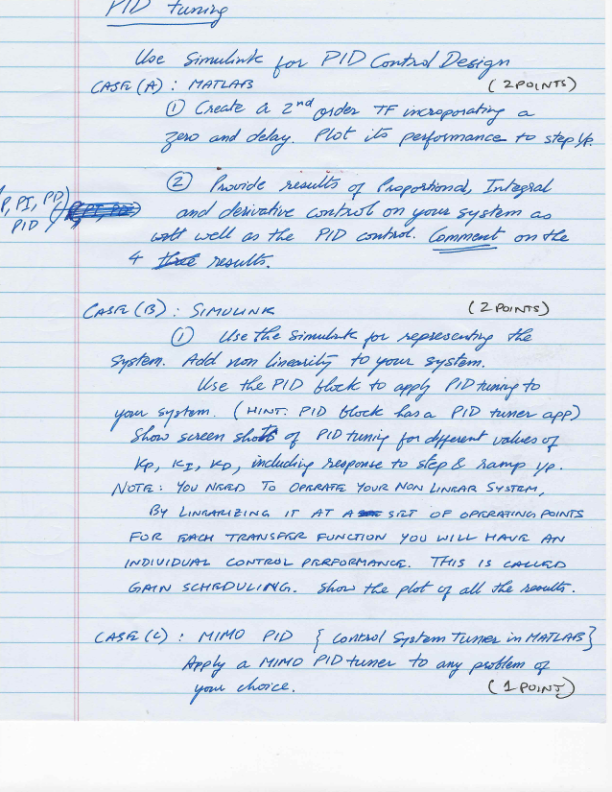 PID tuning
Use Simulink for PID Control Design
CASE (A) : MATLAB (2 POINTS)
① Create a 2nd order TF incroporating a
zero and delay. Plot its performance to step i/p.
② Provide results of Proportional, Integral
P, PI, PD, PID and derivative control on your system as
well as the PID control. Comment on the
4 results.
CASE (B) : SIMULINK (2 POINTS)
① Use the Simulink for representing the
System. Add non linearity to your system.
Use the PID block to apply PID tuning to
your system. (HINT. PID block has a PID tuner app)
Show screen shots of PID tuning for different values of
Kp, KI, KD, including response to step & ramp i/p.
NOTE: YOU NEED TO OPERATE YOUR NON LINEAR SYSTEM,
BY LINEARIZING IT AT A SET OF OPERATING POINTS
FOR EACH TRANSFER FUNCTION YOU WILL HAVE AN
INDIVIDUAL CONTROL PERFORMANCE. THIS IS CALLED
GAIN SCHEDULING. Show the plot of all the results.
CASE (C) : MIMO PID { Control System Tuner in MATLAB }
Apply a MIMO PID tuner to any problem of
your choice. (1 POINT)